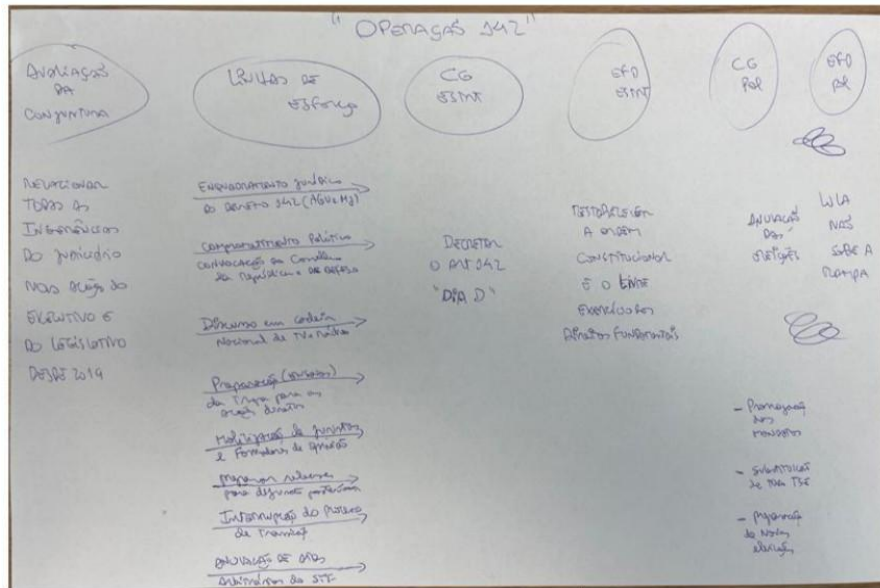 "OPERAÇÃO 142"
AVALIAÇÃO
DA
CONJUNTURA
LINHAS DE
ESFORÇO
CG
ESTRT
EFD
ESTRT
CG
POL
EFD
POL
RELACIONAR
TODAS AS
INGERÊNCIAS
DO JUDICIÁRIO
NAS AÇÕES DO
EXECUTIVO E
DO LEGISLATIVO
DESDE 2019
ENQUADRAMENTO JURÍDICO
DO DECRETO 142 (AGU e MJ)
COMPROMETIMENTO Político
CONVOCAÇÃO DO Conselho
da República e DA DEFESA
Discurso em cadeia
Nacional de TV e Rádio
Preparação
da Tropa para as
ações diretas
Mobilização de juristas
e Formadores de opinião
para
Interrupção do Processo
de Transição
ANULAÇÃO DE ATOS
Arbitrários do STF
DECRETAR
O ART 142
"DIA D"
A ORDEM
CONSTITUCIONAL
E O LIVRE
EXERCÍCIO DOS
DIREITOS FUNDAMENTAIS
ANULAÇÃO
DAS
ELEIÇÕES
LULA
NÃO
SOBE A
RAMPA
- Prorrogação
dos
MANDATOS
- SUBSTITUIÇÃO
de TODO TSE
- preparação
de Novas
eleições